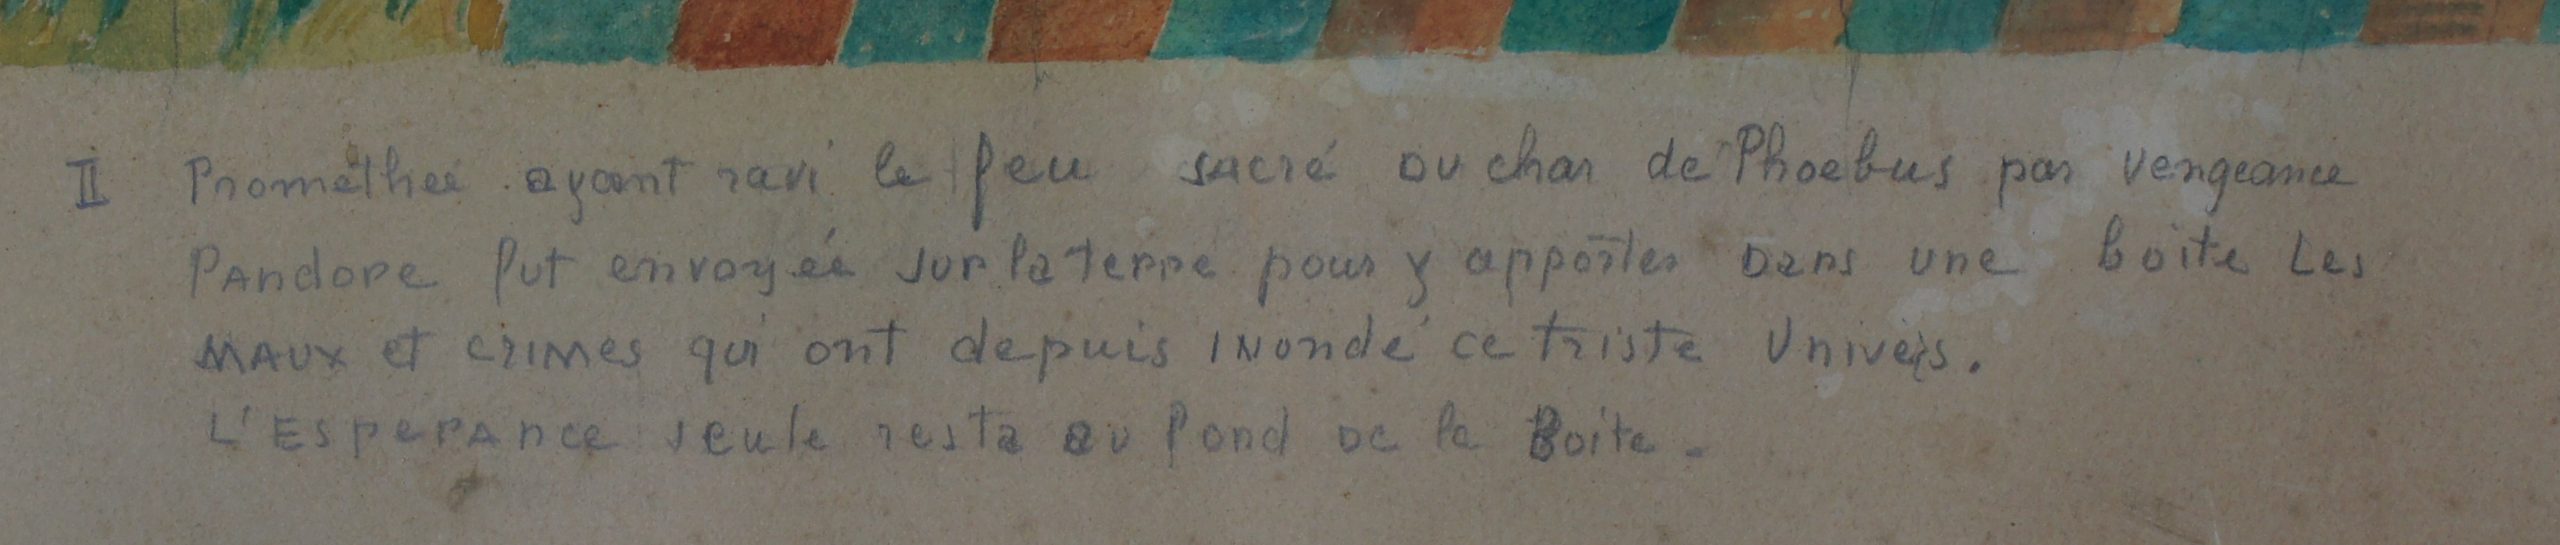 II Prométheé ayant ravi le feu sacré du char de Phoebus par vengeance
Pandore fut envoyéé sur la terre pour y apporter Dans une boite Les
MAUX et crimes qui ont depuis inondé ce triste Univers.
L'Esperance seule resta au fond de la Boite.